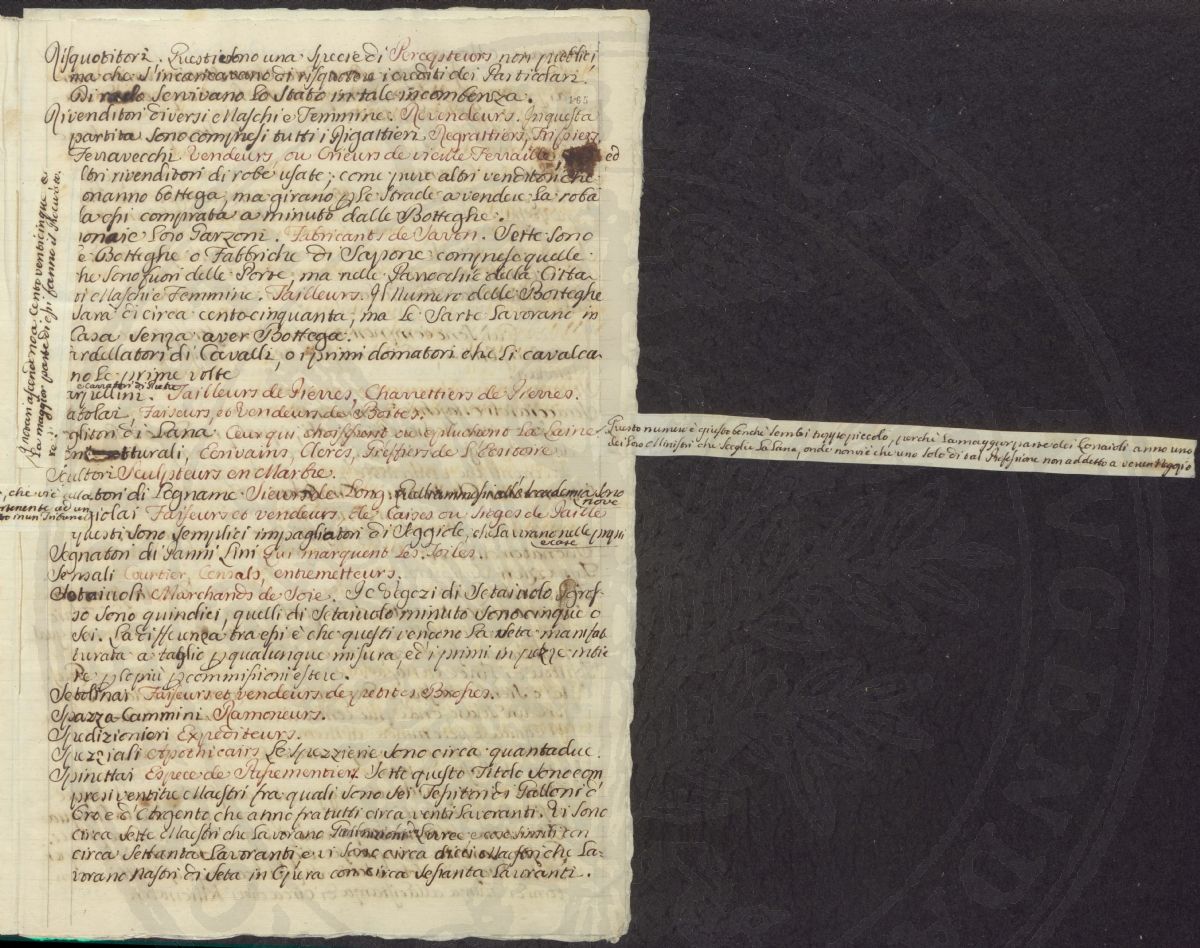 Risquotitori. Questi sono una specie di Recepteurs non pubblici
ma che s'incaricavano di risquotere i crediti dei Particolari.
Di rado servivano lo Stato in tale incombenza.
165
Rivenditori diversi Maschi e Femmine. Revendeurs. In questa
partita sono compresi tutti i Rigattieri Regrattiers, Fripiers,
Ferravecchi Vendeurs, ou Crieurs de vieille Ferraille, ed
ltri rivenditori di robe usate; come pure altri venditori che
onanno bottega, ma girano p le strade a vendere la roba
da essi comprata a minuto dalle Botteghe.
onaie loro Garzoni. Fabricants de Savon. Sette sono
e Botteghe o Fabbriche di Sapone comprese quelle
he sono fuori delle Porte, ma nelle Parrocchie della Città
ti Maschi e Femmine. Tailleurs. Il Numero delle Botteghe
sarà di circa cento cinquanta, ma le Sarte lavorano in
Casa senza aver Bottega.
ardellatori di Cavalli, o i primi domatori che li cavalca-
no le prime volte
e cavatori di Pietre
arpellini. Tailleurs de Pierres, Charrettiers de Pierres.
atolai, Faiseurs, et Vendeurs de Boîtes.
glitori di Lana Ceux qui choississent ou epluchent la Laine
tturali, Ecrivains, Clercs, Greffiers de l'Ecritoire
Scultori Sculpteurs en Marbre.
atori di Legname Sieurs de Long.
nove
giolai Faiseurs et vendeurs de Caises ou Sieges de Paille
questi sono semplici impagliatori di Seggiole, che lavorano nelle proprie
case
Segnatori di Panni Lini Qui marquent les Toiles.
Sensali Courtier, Censals, entremetteurs.
Setaiuoli Marchands de Soie. I Negozi di Setaiuolo Gros-
so sono quindici, quelli di Setaiuolo minuto sono cinque o
sei. La differenza tra essi è che questi vendono la seta manifat
turata a taglio p qualunque misura, ed i primi in pezze intie
re p lo più p commissioni estere.
Setolinai Faiseurs et vendeurs de petites Brosses.
Spazza Cammini Ramoneurs.
Spedizionieri Expediteurs.
Speziali Apothicairs Le Spezzierie sono circa quantadue.
Spinettai Espece de Passementiers Sotto questo Titolo sono com
presi ventitre Maestri fra quali sono sei Tessitori di Galloni d'
Oro e d'Argento che anno fra tutti circa venti Lavoranti. Vi sono
circa sette Maestri che lavorano Livree e cose simili con
circa settanta Lavoranti e vi sono circa dieci Maestri che la-
vorano Nastri di Seta in Opera con circa sessanta Lavoranti.
ascendono a cento venticinque e
la maggior parte di essi fanno il
, che vi è
ertenente ad un
to in un Tribunale
Questo numero è giusto benchè sembri troppo piccolo, perchè la maggior parte dei Lanaioli anno uno
dei loro Ministri che sceglie la Lana, onde non vi è che uno solo di tal Professione non addetto a verun Negozio